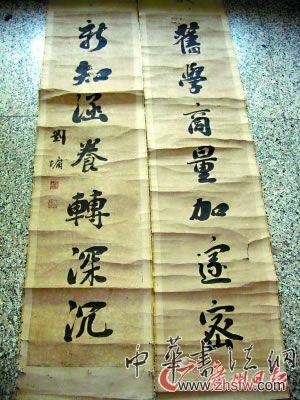 舊學商量加邃密
新知涵養轉深沉
劉墉
中华书法网
广州日报
www.zhsfw.com